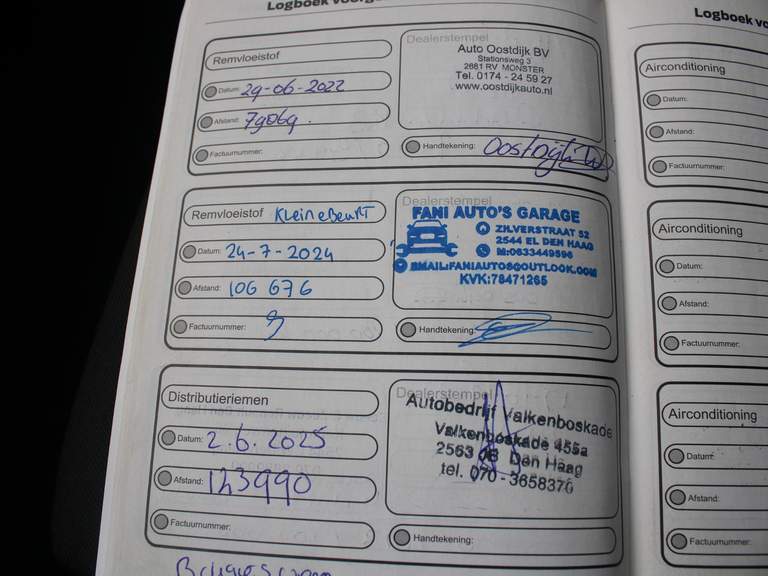 Logboek
Logboek
Remvloeistof
Datum: 29-06-2022
Afstand: 79069.
Factuurnummer:
Dealerstempel
Auto Oostdijk BV
Stationsweg 3
2681 RV MONSTER
Tel. 0174 - 24 59 27
www.oostdijkauto.nl
Handtekening: Oostdijk
Remvloeistof Kleine Beurt
Datum: 24-7-2024
Afstand: 106 676
Factuurnummer:
Dealerstempel
FANI AUTO'S GARAGE
ZILVERSTRAAT 52
2544 EL DEN HAAG
M:0633449596
EMAIL:FANIAUTOS@OUTLOOK.COM
KVK:78471265
Handtekening:
Distributieriemen
Datum: 2.6.2025
Afstand: 123990
Factuurnummer:
Dealerstempel
Autobedrijf Valkenboskade
Valkenboskade 455a
2563 JB Den Haag
tel. 070 - 3658370
Handtekening:
Airconditioning
Datum:
Afstand:
Factuurnummer:
Airconditioning
Datum:
Afstand:
Factuurnummer:
Airconditioning
Datum:
Afstand:
Factuurnummer: